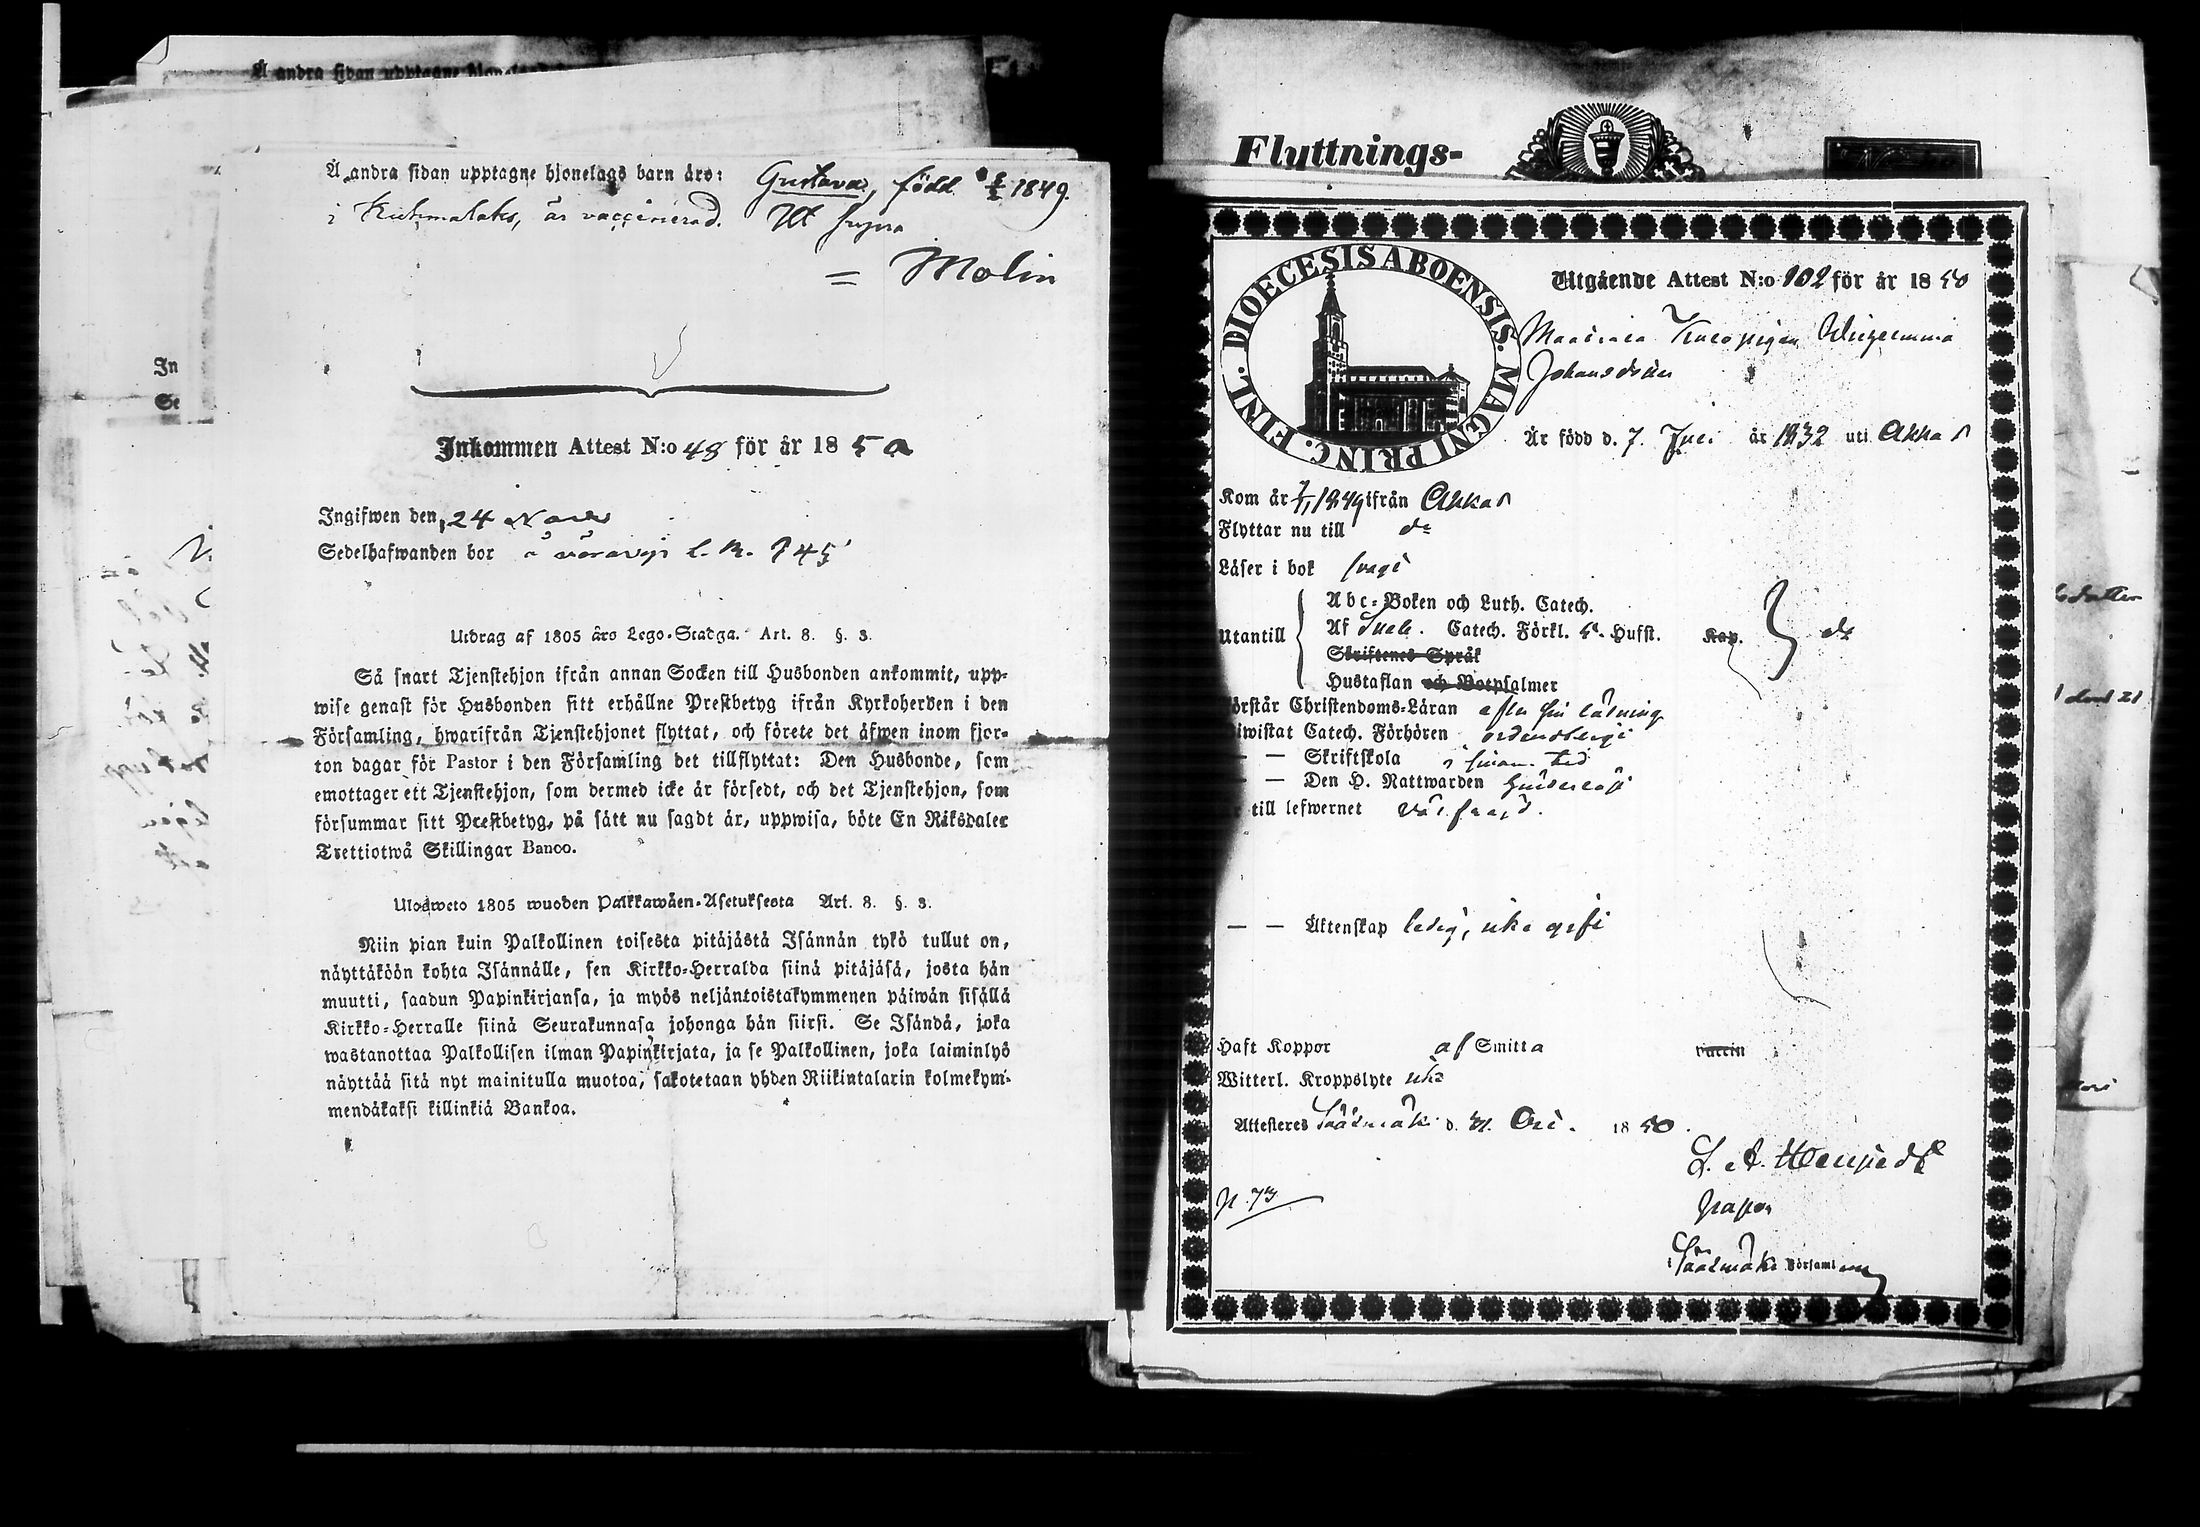 Å andra sidan upptagne hjonelags barn äro: Gustava, född 1849.
i Kuhmalaks, är vaccinerad. Ut supra
= Molin
Inkommen Attest N:o 48 för år 1850
Ingifwen den 24 Nov
Sedelhafwanden bor
Utdrag af 1805 års Lego-Stadga. Art. 8. §. 3.
Så snart Tjenstehjon ifrån annan Socken till Husbonden ankommit, upp-
wise genast för Husbonden sitt erhållne Prestbetyg ifrån Kyrkoherden i den
Församling, hwarifrån Tjenstehjonet flyttat, och förete det äfwen inom fjor-
ton dagar för Pastor i den Församling det tillflyttat: Den Husbonde, som
emottager ett Tjenstehjon, som dermed icke är försedt, och det Tjenstehjon, som
försummar sitt Prestbetyg, på sätt nu sagdt är, uppwisa, böte En Riksdaler
Trettiotwå Skillingar Banco.
Ulosweto 1805 wuoden Palkkawäen-Asetuksesta Art. 8. §. 3.
Niin pian kuin Palkollinen toisesta pitäjästä Isännän tykö tullut on,
näyttäköön kohta Isännälle, sen Kirkko-Herralda siinä pitäjäsä, josta hän
muutti, saadun Papinkirjansa, ja myös neljäntoistakymmenen päiwän sisällä
Kirkko-Herralle siinä Seurakunnasa johonga hän siirsi. Se Isändä, joka
wastanottaa Palkollisen ilman Papinkirjata, ja se Palkollinen, joka laiminlyö
näyttää sitä nyt mainitulla muotoa, sakotetaan yhden Riikintalarin kolmekym-
mendäkaksi killinkiä Bankoa.
Flyttnings-
DIOECESIS ABOENSIS. MAGNI PRINC. FINL.
Utgående Attest N:o 102 för år 1850
Johansdotter
Är född d. 7 Juli år 1832 uti Akkas
Kom år 1849 ifrån Akkas
Flyttar nu till do
Läser i bok svagt
Utantill
Abc-Boken och Luth. Catech.
Af Sueb. Catech. Förkl. Hufst. Kap. do
Skriftenes Språk
Hustaflan och Botpsalmer
örstår Christendoms-Läran efter sin läsning
iwistat Catech. Förhören ordentligt
— — Skriftskola i sinom tid
— — Den H. Nattwarden
till lefwernet välfrejd.
— — Äktenskap ledig, icke gift
Haft Koppor af Smitta vaccin
Witterl. Kroppslyte icke
Attesteres Sääxmäki d. 31. Oct. 1850.
i Sääxmäki Församling